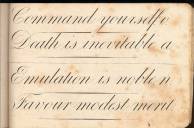 Command yourself o
Death is inevitable a
Emulation is noble n
Favour modest merit